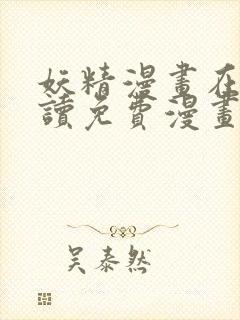 妖精漫畫在
讀免費漫畫
吴泰然